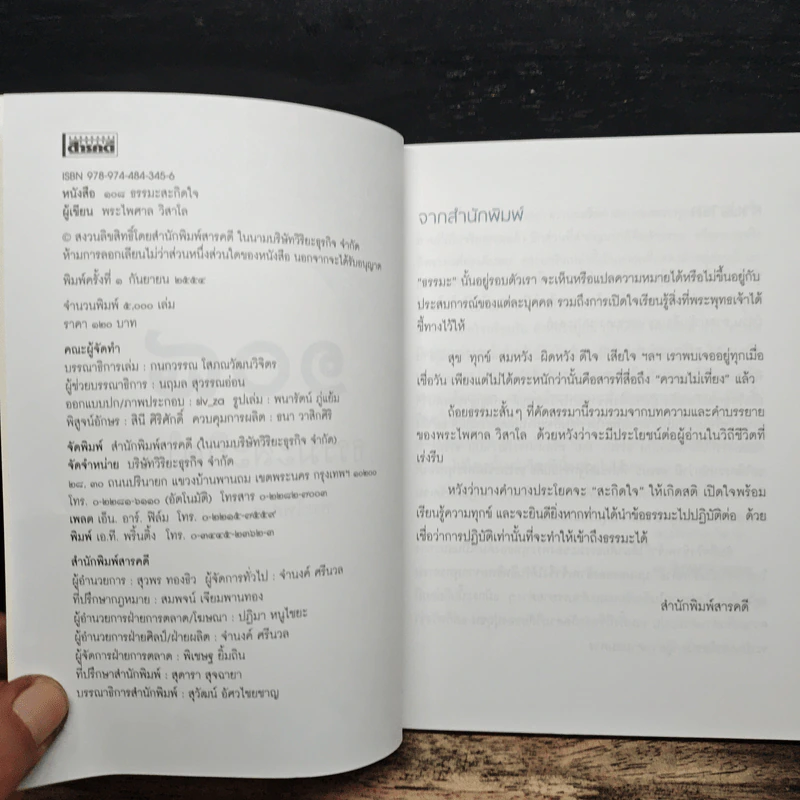 สารคดี
ISBN 978-974-484-345-6
หนังสือ ๑๐๘ ธรรมะสะกิดใจ
ผู้เขียน พระไพศาล วิสาโล
© สงวนลิขสิทธิ์โดยสำนักพิมพ์สารคดี ในนามบริษัทวิริยะธุรกิจ จำกัด
ห้ามการลอกเลียนไม่ว่าส่วนหนึ่งส่วนใดของหนังสือ นอกจากจะได้รับอนุญาต
พิมพ์ครั้งที่ ๑ กันยายน ๒๕๕๔
จำนวนพิมพ์ ๕,๐๐๐ เล่ม
ราคา ๑๒๐ บาท
คณะผู้จัดทำ
บรรณาธิการเล่ม : กนกวรรณ โสภณวัฒนวิจิตร
ผู้ช่วยบรรณาธิการ : นฤมล สุวรรณอ่อน
ออกแบบปก/ภาพประกอบ : siv_za รูปเล่ม : พนารัตน์ ภู่แย้ม
พิสูจน์อักษร : สินี ศิริศักดิ์ ควบคุมการผลิต : ธนา วาสิกศิริ
จัดพิมพ์ สำนักพิมพ์สารคดี (ในนามบริษัทวิริยะธุรกิจ จำกัด)
จัดจำหน่าย บริษัทวิริยะธุรกิจ จำกัด
๒๘, ๓๐ ถนนปรินายก แขวงบ้านพานถม เขตพระนคร กรุงเทพฯ ๑๐๒๐๐
โทร. ๐-๒๒๘๑-๖๑๑๐ (อัตโนมัติ) โทรสาร ๐-๒๒๘๒-๗๐๐๓
เพลต เอ็น. อาร์. ฟิล์ม โทร. ๐-๒๒๑๕-๗๕๕๙
พิมพ์ เอ.ที. พริ้นติ้ง โทร. ๐-๓๔๔๕-๒๓๖๒-๓
สำนักพิมพ์สารคดี
ผู้อำนวยการ : สุวพร ทองธิว ผู้จัดการทั่วไป : จำนงค์ ศรีนวล
ที่ปรึกษากฎหมาย : สมพจน์ เจียมพานทอง
ผู้อำนวยการฝ่ายการตลาด/โฆษณา : ปฏิมา หนูไชยะ
ผู้อำนวยการฝ่ายศิลป์/ฝ่ายผลิต : จำนงค์ ศรีนวล
ผู้จัดการฝ่ายการตลาด : พิเชษฐ ยิ้มถิน
ที่ปรึกษาสำนักพิมพ์ : สุดารา สุจฉายา
บรรณาธิการสำนักพิมพ์ : สุวัฒน์ อัศวไชยชาญ
จากสำนักพิมพ์
"ธรรมะ" นั้นอยู่รอบตัวเรา จะเห็นหรือแปลความหมายได้หรือไม่ขึ้นอยู่กับ
ประสบการณ์ของแต่ละบุคคล รวมถึงการเปิดใจเรียนรู้สิ่งที่พระพุทธเจ้าได้
ชี้ทางไว้ให้
สุข ทุกข์ สมหวัง ผิดหวัง ดีใจ เสียใจ ฯลฯ เราพบเจออยู่ทุกเมื่อ
เชื่อวัน เพียงแต่ไม่ได้ตระหนักว่านั่นคือสารที่สื่อถึง "ความไม่เที่ยง" แล้ว
ถ้อยธรรมะสั้นๆ ที่คัดสรรมานี้รวมรวมจากบทความและคำบรรยาย
ของพระไพศาล วิสาโล ด้วยหวังว่าจะมีประโยชน์ต่อผู้อ่านในวิถีชีวิตที่
เร่งรีบ
หวังว่าบางคำบางประโยคจะ "สะกิดใจ" ให้เกิดสติ เปิดใจพร้อม
เรียนรู้ความทุกข์ และจะยินดียิ่งหากท่านได้นำข้อธรรมะไปปฏิบัติต่อ ด้วย
เชื่อว่าการปฏิบัติเท่านั้นที่จะทำให้เข้าถึงธรรมะได้
สำนักพิมพ์สารคดี